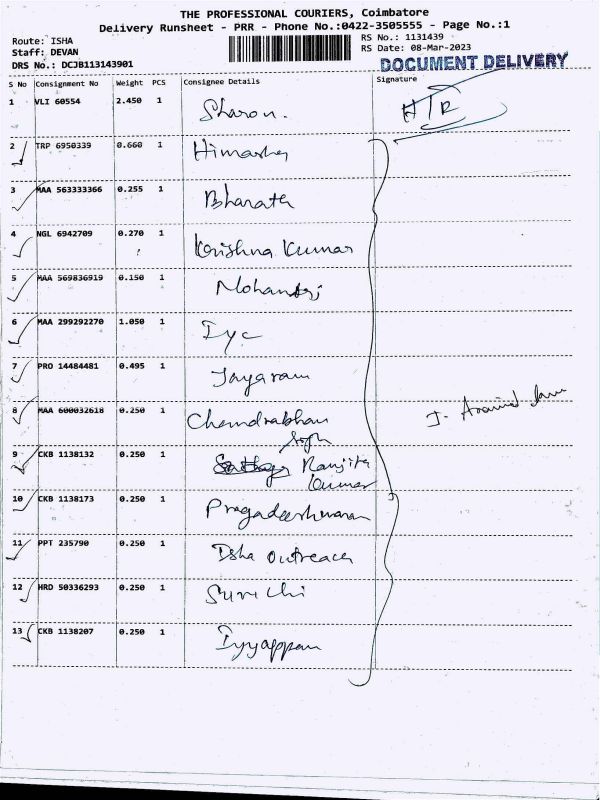 THE PROFESSIONAL COURIERS, Coimbatore
Delivery Runsheet - PRR - Phone No.:0422-3505555 - Page No.:1
Route: ISHA
Staff: DEVAN
DRS No.: DCJB113143901
RS No.: 1131439
RS Date: 08-Mar-2023
DOCUMENT DELIVERY
S No Consignment No Weight PCS Consignee Details Signature
1 VLI 60554 2.450 1 Sharon. H/R
2 TRP 6950339 0.660 1
3 MAA 563333366 0.255 1 Bharath
4 NGL 6942709 0.270 1 Krishna Kumar
5 MAA 569836919 0.150 1
6 MAA 299292270 1.050 1 Iyc
7 PRO 14484481 0.495 1 Jayaram
8 MAA 600032618 0.250 1 Chandrabhan
9 CKB 1138132 0.250 1 Ranjita
Kumar
10 CKB 1138173 0.250 1 Pragadeeshwaran
11 PPT 235790 0.250 1 Isha Outreach
12 HRD 50336293 0.250 1 Suruchi
13 CKB 1138207 0.250 1 Iyyappan